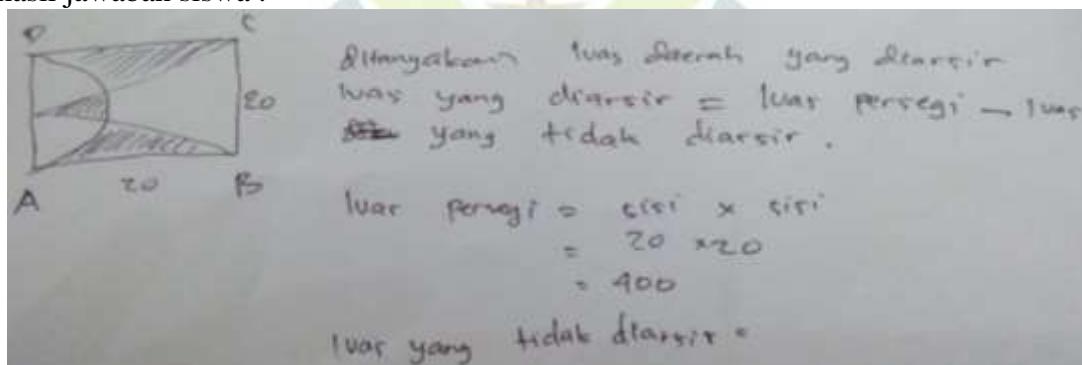 hasil jawaban siswa :
D C
20
20
A B
ditanyakan luas daerah yang diarsir
luas yang diarsir = luas persegi - luas
yang tidak diarsir .
luas persegi = sisi x sisi
= 20 x20
= 400
luas yang tidak diarsir =